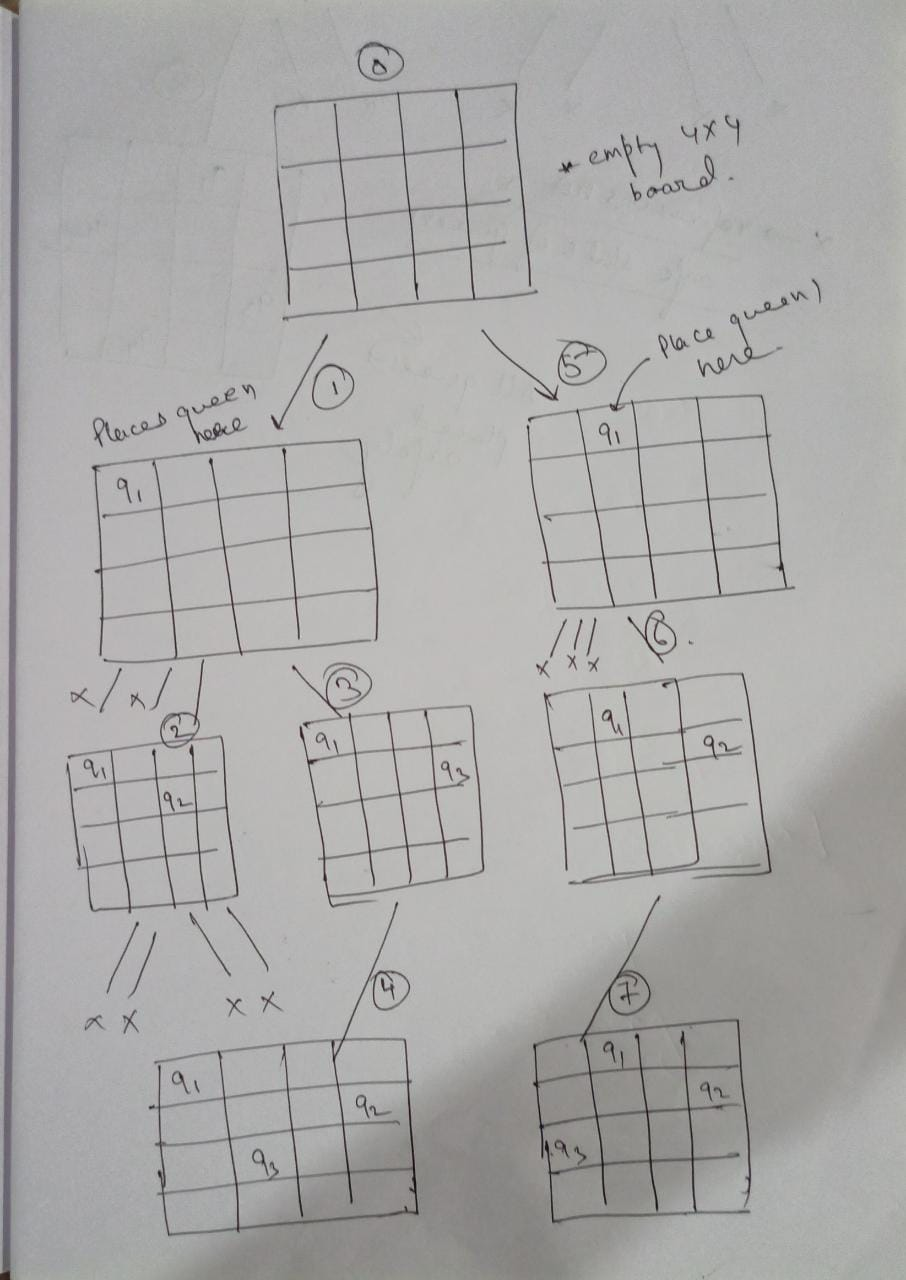 0
* empty 4x4
board.
1
5
Place queen 1
here
Places queen
here
q1
q1
x x
x x x
6.
2
3
q1
q2
q1
q3
q1
q2
x x
x x
4
7
q1
q2
q3
q1
q2
q3